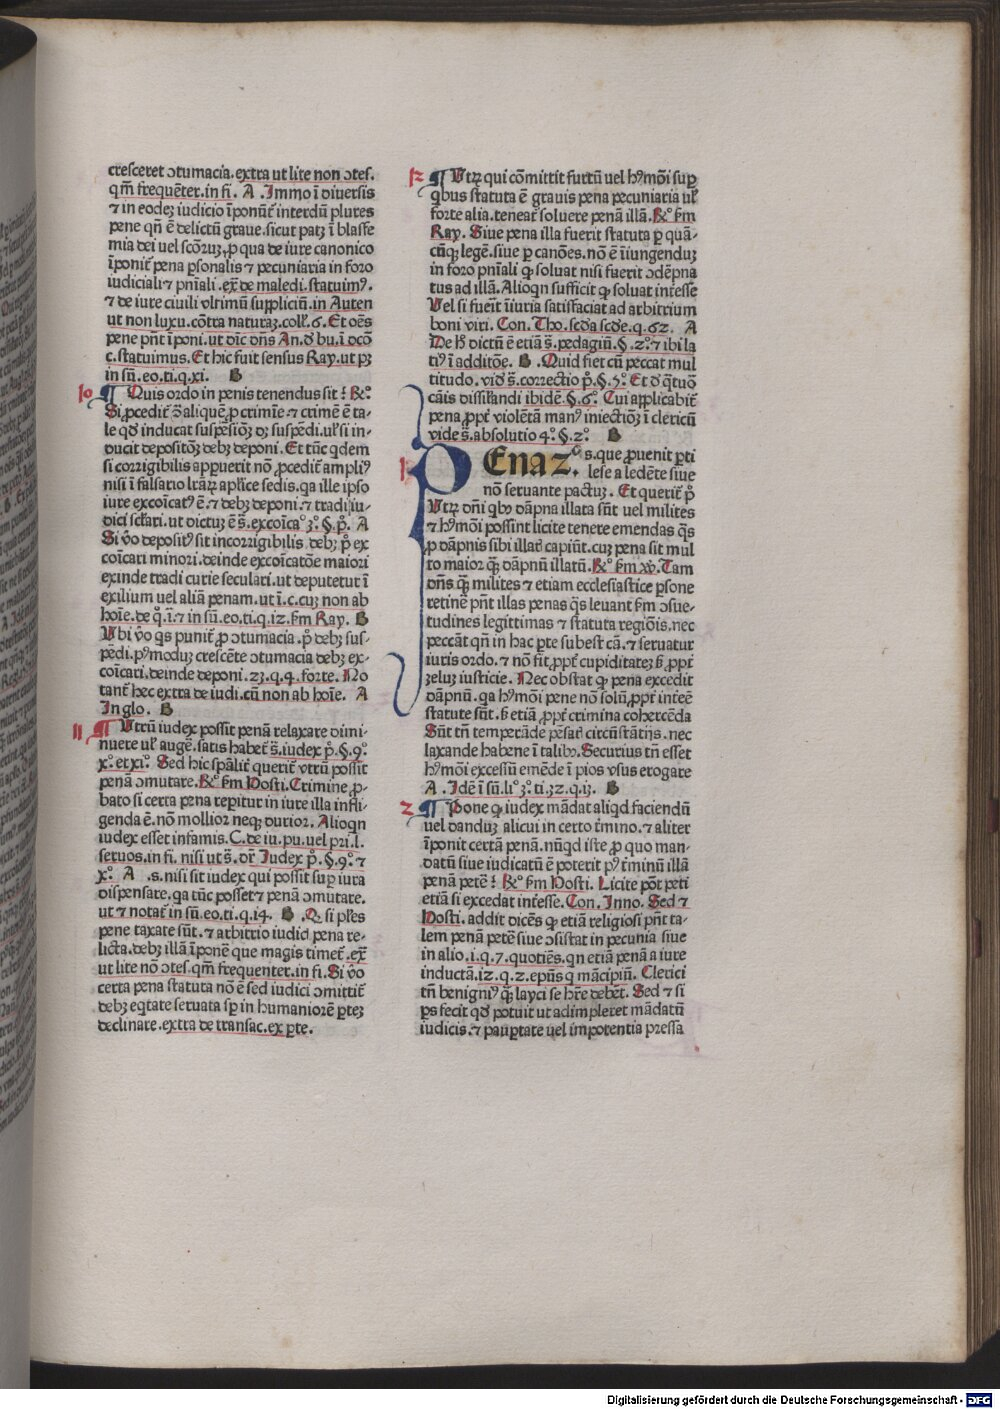 cresceret ↄtumacia. extra ut lite non ↄtes.
qm̄ frequēter. in fi. A . Immo ī diuersis
⁊ in eodeꝫ iudicio īponūt᷑ interdū plures
pene qn̄ ē delictū graue. sicut patꝫ ī blasfe
mia dei uel scōruꝫ, ꝓ qua de iure canonico
īponit᷑ pena ꝑsonalis ⁊ pecuniaria in foro
iudiciali ⁊ pnīali. ex̄ de maledi. statuimꝰ.
⁊ de iure ciuili vltimū suppliciū. in Auten
ut non luxu. cōtra naturaꝫ. coll̄. 6. Et oēs
pene pn̄t īponi. ut dīc dn̄s An. d̄ bu. ī dcō
c. statuimus. Et hic fuit sensus Ray. ut pꝫ
in sū. eo. ti. q. xi. B
10 ¶ Quis ordo in penis tenendus sit ? R̄º.
Si ꝓcedit᷑ ꝯ̄ aliquē ꝓ crimīe ⁊ crimē ē ta-
le qd̄ inducat suspēsiōꝫ dꝫ suspēdi. ul̄ si in-
ducit depositōꝫ debꝫ deponi. Et tūc qdem
si corrigibilis apparuerit nō ꝓcedit᷑ ampliꝰ
nisi ī falsario lr̄aꝝ aplīce sedis. qa ille ipso
iure excoīcatꝰ ē. ⁊ debꝫ deponi. ⁊ tradi iu-
dici scl̄ari. ut dictuꝫ ē s̄. excoīcaº 3º. §. pº. A
Si ṽo depositꝰ sit incorrigibilis debꝫ pº ex
coīcari minori. deinde excoīcatōe maiori
exinde tradi curie seculari. ut deputetur ī
exilium uel aliā penam. ut ī. c. cuꝫ non ab
hoīe. de qº. i. ⁊ in sū. eo. ti. q. 12. fm̄ Ray. B
Vbi ṽo qs punit᷑ ꝓ ↄtumacia. pº debꝫ sus-
pēdi. pꝰmoduꝫ crescēte ↄtumacia debꝫ ex-
coīcari. deinde deponi. 23. q. 4. forte. No
tant᷑ hec extra de iudi. cū non ab hoīe. A
In glo. B
11 ¶ Vtrū iudex possit penā relaxare dimi-
nuere ul̄ augē. satis habet᷑ s̄. iudex pº. §. 9º
xº. et xiº. Sed hic spālit᷑ querit᷑ vtrū possit
penā ↄmutare. R̄º fm̄ Hosti. Crimine ꝓ-
bato si certa pena reꝑitur in iure illa infli-
genda ē. nō mollior neqꝫ durior. Alioqn
iudex esset infamis. C. de iu. pu. uel pri. l.
seruos. in fi. nisi ut s̄. dr̄ Iudex pº. §. 9º. ⁊
xº. A .s. nisi sit iudex qui possit suꝑ iura
dispensare. qa tūc posset ⁊ penā ↄmutare.
ut ⁊ notat᷑ in sū. eo. ti. q. 14. B . Q̄ si pl̄es
pene taxate sūt. ⁊ arbitrio iudici pena re-
licta. debꝫ illā īponē que magis timet᷑. ex̄
ut lite nō ↄtes. qm̄ frequenter. in fi. Si ṽo
certa pena statuta nō ē sed iudici ↄmittit᷑
debꝫ eqtate seruata sꝑ in humaniorē ꝑteꝫ
declinare. extra de transac. ex ꝑte.
12 ¶ Vtꝝ qui cōmittit furtū uel hꝰmōi suꝑ
qbus statuta ē grauis pena pecuniaria ul̄
forte alia. teneat᷑ soluere penā illā. R̄º fm̄
Ray. Siue pena illa fuerit statuta ꝑ quā-
cūqꝫ legē. siue ꝑ canōes. nō ē īiungenduꝫ
in foro pnīali ꝙ soluat nisi fuerit ↄdēpna
tus ad illā. Alioqn sufficit ꝙ soluat intēsse
Vel si fuerit īiuria satisfaciat ad arbitrium
boni viri. Con. Tho. scda scde. q. 62. A
De hº dictū ē etiā s̄. pedagiū. §. 2º. ⁊ ibi la
tiꝰ ī additōe. B . Quid fiet cū peccat mul
titudo. vid̄ s̄. correctio pº. §. 5º. Et d̄ q̄tuō
cāis dissikandi ibidē. §. 6º. Cui applicabit᷑
pena ꝓpt᷑ violētā manꝰ iniectiōꝫ ī clericū
vide s̄. absolutio 4º. §. 2º. B
1 PEna 2º. s. que ꝓuenit ꝑti
lese a ledēte siue
nō seruante pactuꝫ. Et querit᷑ pº
Vtꝝ dn̄i qbꝰ dāpna illata sūt uel milites
⁊ hꝰmōi possint licite tenere emendas q̄s
ꝓ dāpnis sibi illat᷑ capiūt. cuꝫ pena sit mul
to maior q̄ꝫ dāpnū illatū. R̄º fm̄ xꝯ. Tam
dn̄s q̄ꝫ milites ⁊ etiam ecclesiastice ꝑsone
retinē pn̄t illas penas q̄s leuant fm̄ ↄsue-
tudines legittimas ⁊ statuta regiōis. nec
peccāt qn̄ in hac ꝑte subest cā. ⁊ seruatur
iuris ordo. ⁊ nō fit ꝓpt᷑ cupiditateꝫ ꝫ ꝓpt᷑
zeluꝫ iusticie. Nec obstat ꝙ pena excedit
dāpnū. qa hꝰmōi pene nō solū ꝓpt᷑ int᷑ēē
statute sūt. ꝫ etiā ꝓpt᷑ crimina cohercēda
Sūt tn̄ temperāde pēsat᷑ circūstātijs. nec
laxande habene ī talibꝰ. Securius tn̄ esset
hꝰmōi excessū emēde ī pios vsus erogare
A . Idē ī sū. liº 3º. ti. 32. q. 13. B
2 ¶ Pone ꝙ iudex mādat aliqd faciendū
uel danduꝫ alicui in certo t᷑mino. ⁊ aliter
īponit certā penā. nūqd iste ꝓ quo man-
datū siue iudicatū ē poterit pꝰ t᷑minū illā
penā petē ? R̄º fm̄ Hosti. Licite pōt peti
etiā si excedat int᷑esse. Con. Inno. Sed ⁊
Hosti. addit dicēs ꝙ etiā religiosi pn̄t ta-
lem penā petē siue ↄsistat in pecunia siue
in alio. i. q. 7. quotiēs. qn etiā penā a iure
inductā. 12. q. 2. epūs q mācipiū. Clerici
tn̄ benigniꝰ q̄ꝫ layci se hr̄e debēt. Sed ⁊ si
ps fecit qd̄ potuit ut adimpleret mādatū
iudicis. ⁊ pauꝑtate uel impotentia pressa
Digitalisierung gefördert durch die Deutsche Forschungsgemeinschaft - DFG